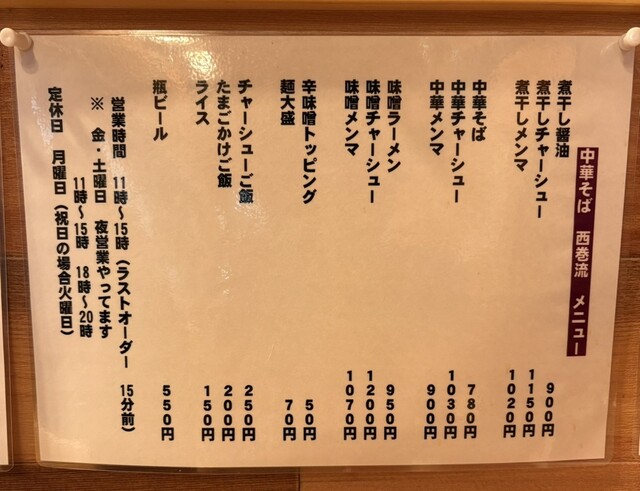 中華そば 西巻流 メニュー
煮干し醤油 900円
煮干しチャーシュー 1150円
煮干しメンマ 1020円
中華そば 780円
中華チャーシュー 1030円
中華メンマ 900円
味噌ラーメン 950円
味噌チャーシュー 1200円
味噌メンマ 1070円
辛味噌トッピング 50円
麺大盛 70円
チャーシューご飯 250円
たまごかけご飯 200円
ライス 150円
瓶ビール 550円
営業時間 11時～15時(ラストオーダー 15分前)
※ 金・土曜日 夜営業やってます
11時～15時 18時～20時
定休日 月曜日(祝日の場合火曜日)